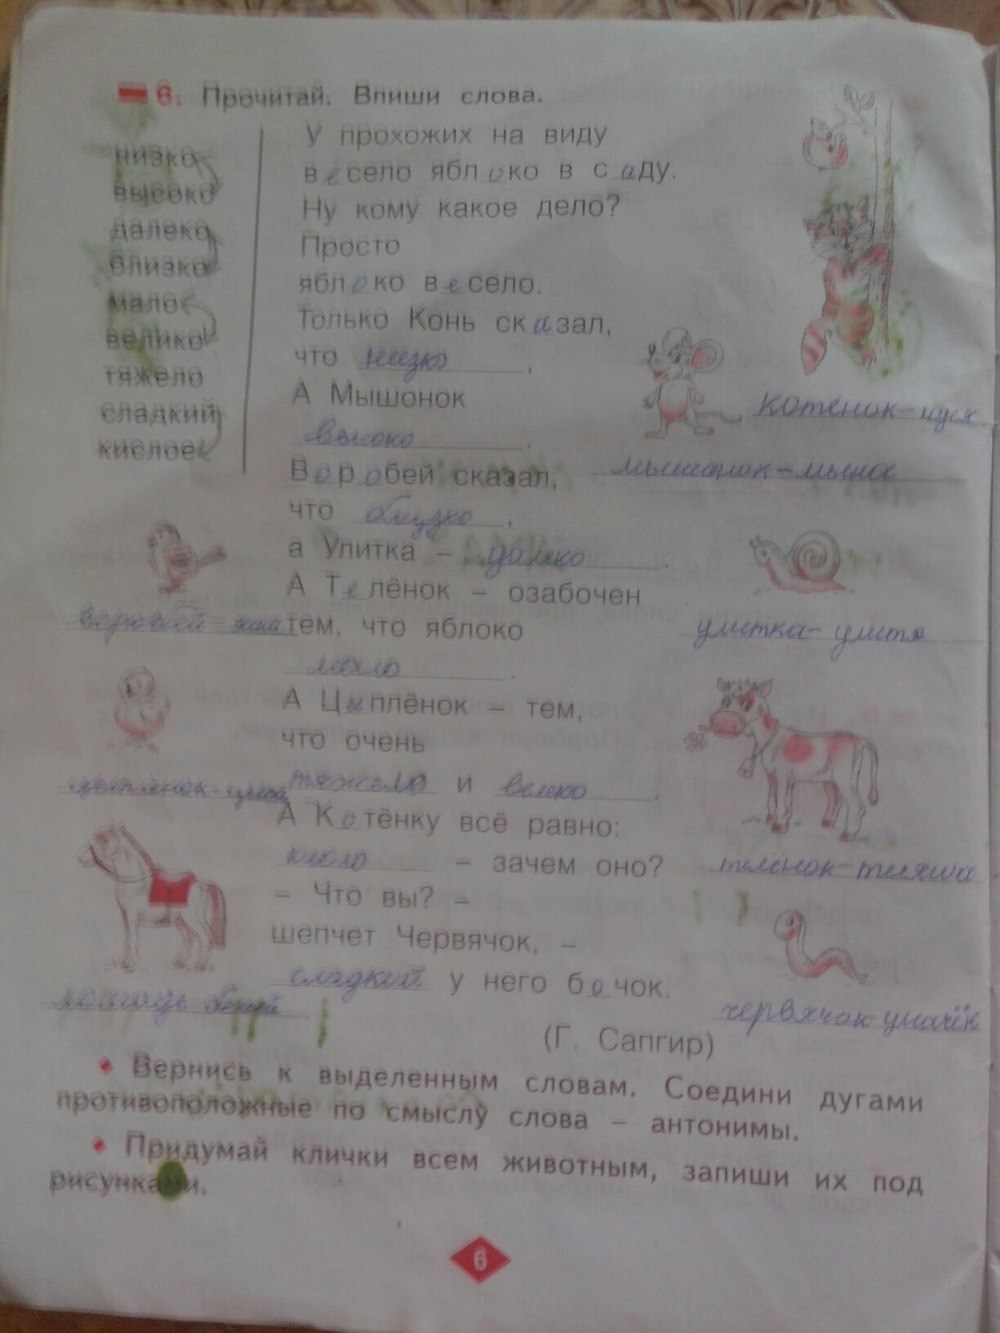 6. Прочитай. Впиши слова.
низко
высоко
далеко
близко
мало
велико
тяжело
сладкий
кислое
У прохожих на виду
весело яблоко в саду.
Ну кому какое дело?
Просто
яблоко весело.
Только Конь сказал,
что низко,
А Мышонок
высоко.
Воробей сказал,
что близко,
а Улитка – далеко.
А Телёнок – озабочен
тем, что яблоко
мало.
А Цыплёнок – тем,
что очень
тяжело и велико.
А Котёнку всё равно:
кисло – зачем оно?
– Что вы? –
шепчет Червячок, –
сладкий у него бочок.
(Г. Сапгир)
котёнок-
мышонок-
воробей-
улитка-
цыплёнок-
телёнок-
лошадь
червячок
• Вернись к выделенным словам. Соедини дугами
противоположные по смыслу слова – антонимы.
• Придумай клички всем животным, запиши их под
рисунками.
6